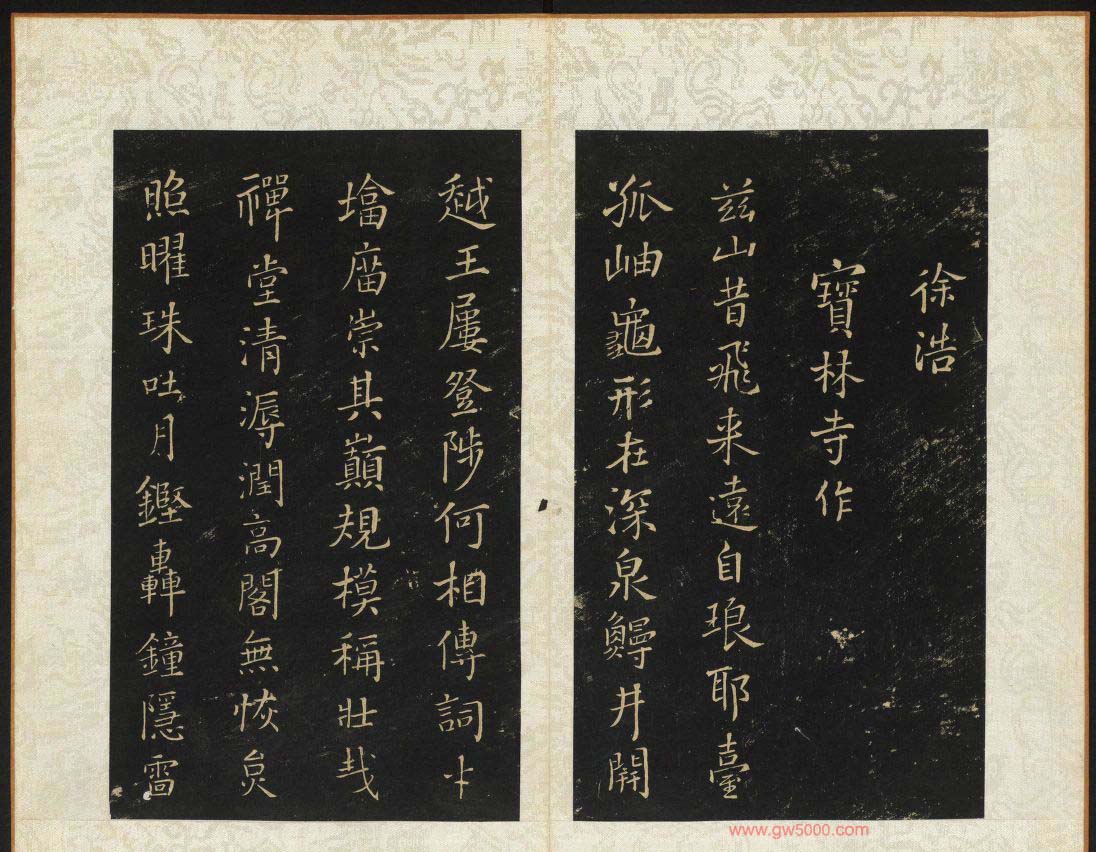 徐浩
寶林寺作
兹山昔飛来遠自琅耶臺
孤岫龜形在深泉鰻井開
越王屢登陟何相傳詞才
墖庿崇其巔規模稱壯哉
禪堂清溽潤高閣無恢炱
照曜珠吐月鏗轟鐘隱雷
www.gw5000.com